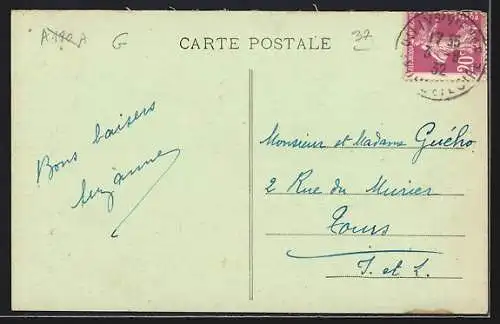 A190A
G
CARTE POSTALE
37
20
Bons baisers
Suzanne
Monsieur et Madame Guého
2 Rue du Murier
Tours
I. et L.